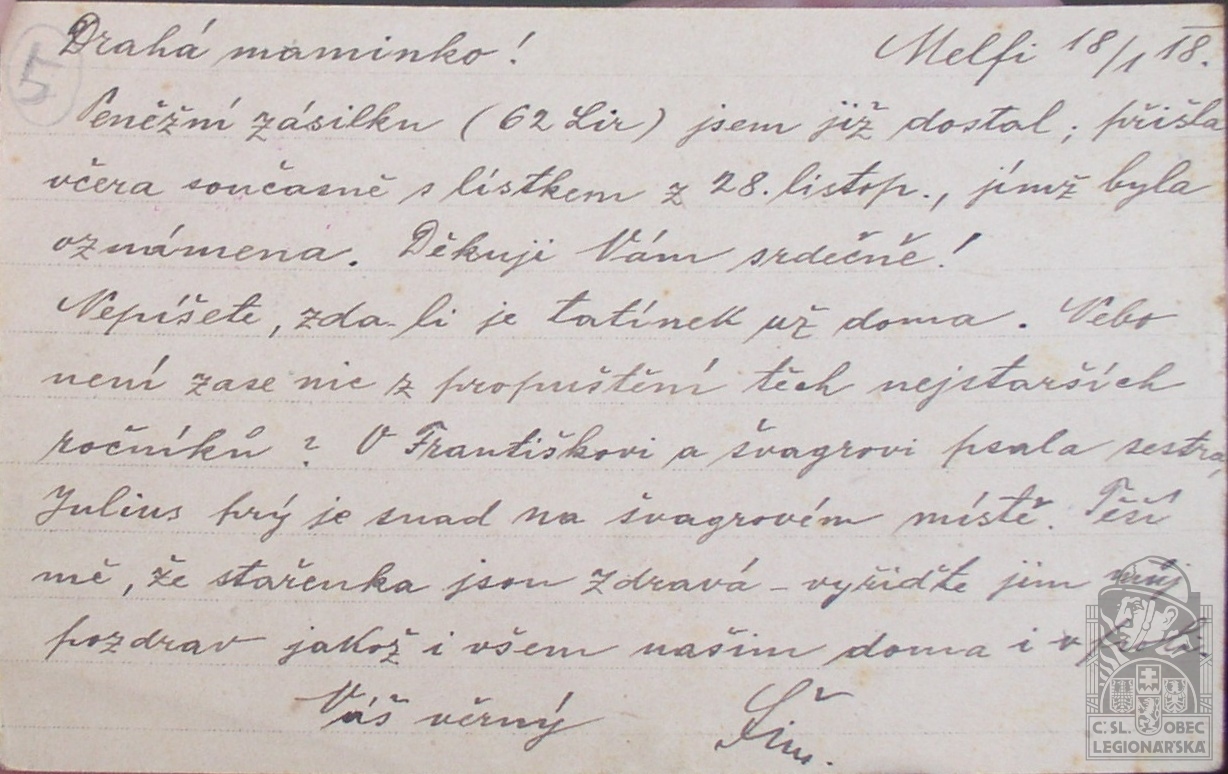 5
Drahá maminko! Melfi 18/1 18.
Peněžní zásilku (62 Lir) jsem již dostal; přišla
včera současně s lístkem z 28. listop., jímž byla
oznámena. Děkuji Vám srdečně!
Nepíšete, zda-li je tatínek už doma. Nebo
není zase nic z propuštění těch nejstarších
ročníků? O Františkovi a švagrovi psala sestra,
Julius prý je snad na švagrovém místě. Těší
mě, že stařenka jsou zdravá - vyřiďte jim můj
pozdrav jakož i všem našim doma i v
Váš věrný Šim.
Č.SL. OBEC
LEGIONÁŘSKÁ